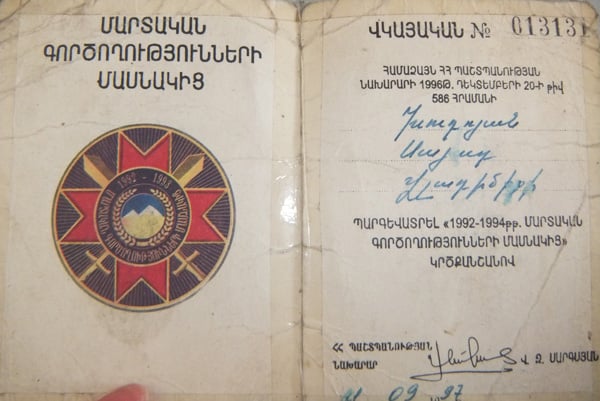 ՄԱՐՏԱԿԱՆ
ԳՈՐԾՈՂՈՒԹՅՈՒՆՆԵՐԻ
ՄԱՍՆԱԿԻՑ
1992 - 1994
ՎԿԱՅԱԿԱՆ № 013131
ՀԱՄԱՁԱՅՆ ՀՀ ՊԱՇՏՊԱՆՈՒԹՅԱՆ
ՆԱԽԱՐԱՐԻ 1996Թ. ԴԵԿՏԵՄԲԵՐԻ 20-Ի թիվ
586 ՀՐԱՄԱՆԻ
Վլադիմիրի
ՊԱՐԳԵՎԱՏՐԵԼ «1992-1994թթ. ՄԱՐՏԱԿԱՆ
ԳՈՐԾՈՂՈՒԹՅՈՒՆՆԵՐԻ ՄԱՍՆԱԿԻՑ»
ԿՐԾՔԱՆՇԱՆՈՎ
ՀՀ ՊԱՇՏՊԱՆՈՒԹՅԱՆ
ՆԱԽԱՐԱՐ Վ. Զ. ՍԱՐԳՍՅԱՆ
09 1997